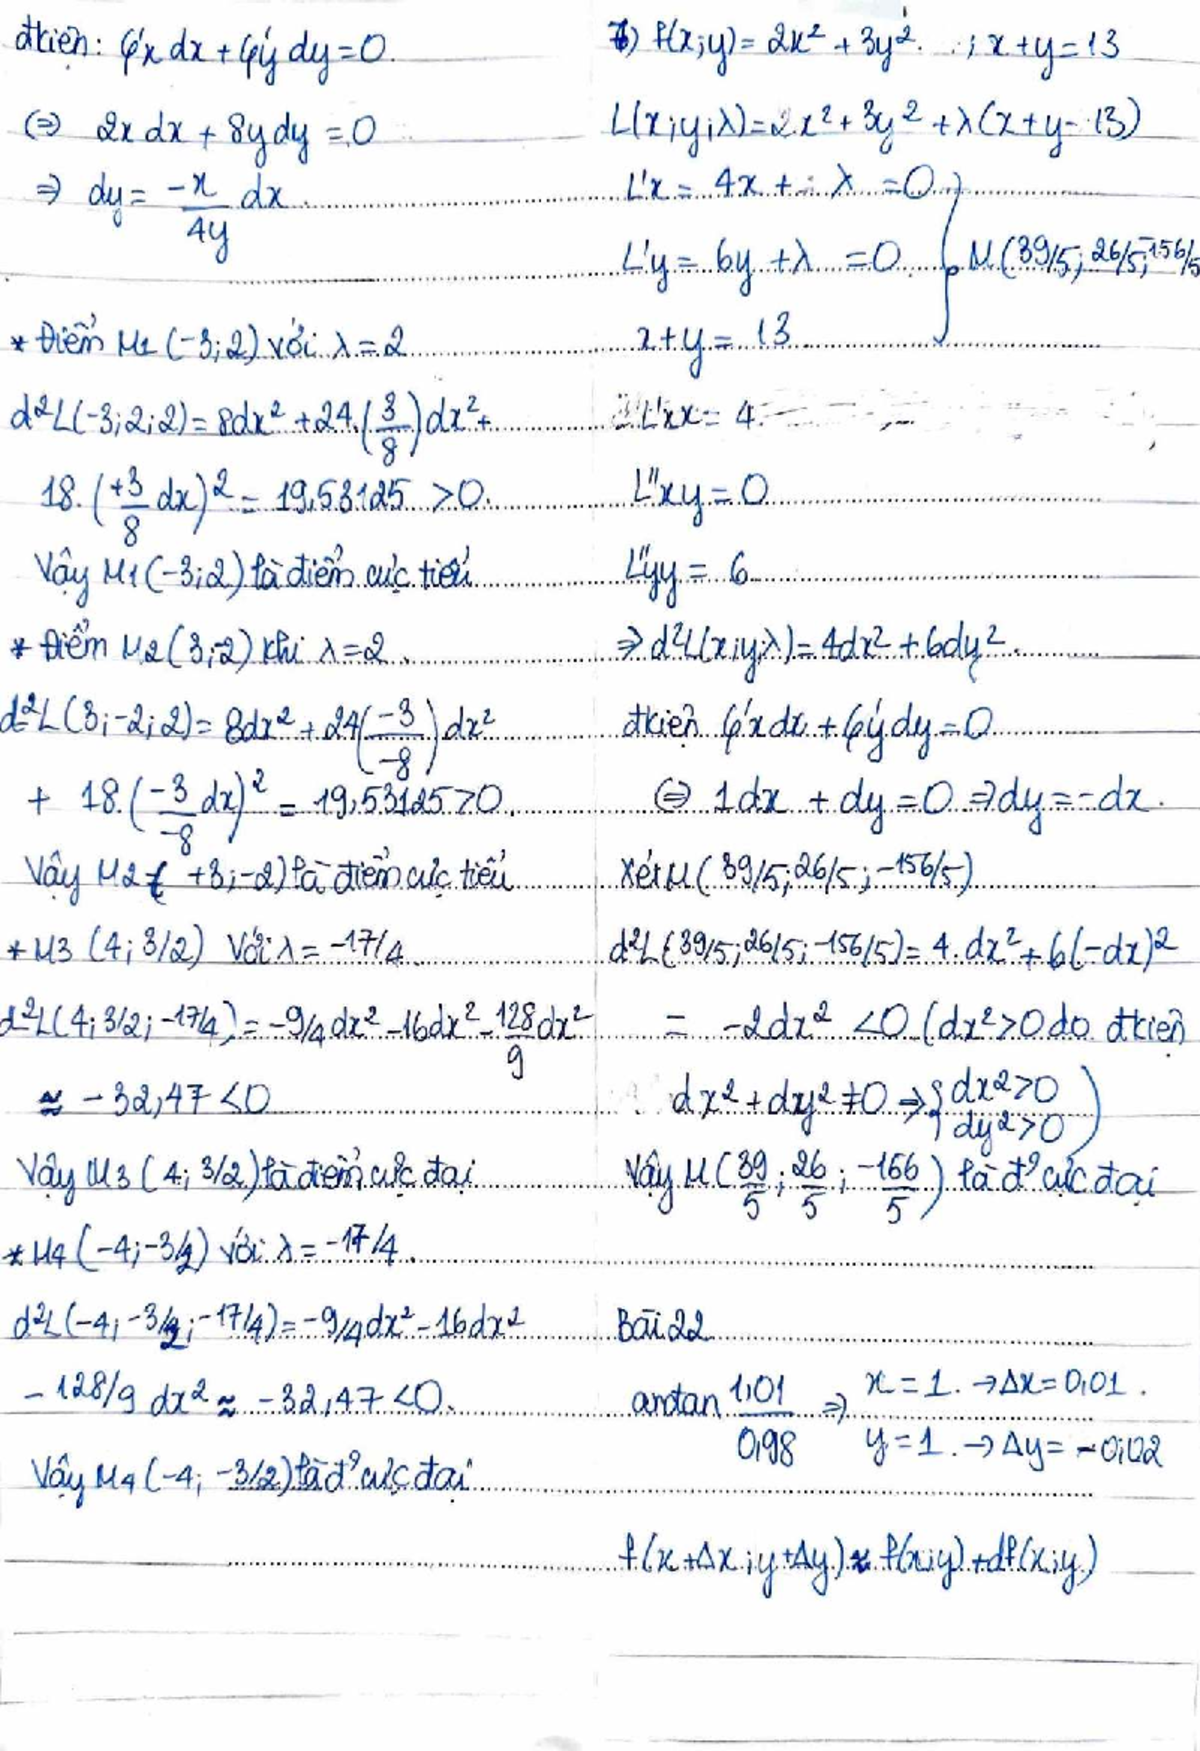 đkiện: φ'x dx + φ'y dy = 0.
(=) 2x dx + 8y dy = 0
=) dy = -x/4y dx
* Điểm M1 (-3; 2) với λ = 2
d²L(-3; 2; 2) = 8dx² + 24.(3/8)dx² +
18.(+3/8 dx)² = 19,53125 > 0.
Vậy M1 (-3; 2) là điểm cực tiểu
* Điểm M2 (3; -2) khi λ = 2.
d²L(3; -2; 2) = 8dx² + 24(-3/-8)dx²
+ 18.(-3/-8 dx)² = 19,53125 > 0.
Vậy M2 ( +3; -2) là điểm cực tiểu
* M3 (4; 3/2) với λ = -17/4
d²L(4; 3/2; -17/4) = -9/4dx² - 16dx² - 128/9 dx²
≈ -32,47 < 0
Vậy M3 (4; 3/2) là điểm cực đại
* M4 (-4; -3/2) với λ = -17/4.
d²L(-4; -3/2; -17/4) = -9/4dx² - 16dx²
- 128/9 dx² ≈ -32,47 < 0.
Vậy M4 (-4; -3/2) là đ² cực đại
7) f(x;y) = 2x² + 3y² ; x + y = 13
L(x;y;λ) = 2x² + 3y² + λ(x + y - 13)
L'x = 4x + λ = 0
L'y = 6y + λ = 0 M(39/5; 26/5; -156/5
x + y = 13
L''xx = 4.
L''xy = 0
L''yy = 6
=> d²L(x;y;λ) = 4dx² + 6dy².
đkiện φ'x dx + φ'y dy = 0
(=) 1dx + dy = 0 => dy = -dx.
Xét M(39/5; 26/5; -156/5)
d²L(39/5; 26/5; -156/5) = 4.dx² + 6(-dx)²
= -2dx² < 0 (dx² > 0 do đkiện
dx² + dy² ≠ 0 => { dx² > 0
dy² > 0 )
Vậy M(39/5; 26/5; -156/5) là đ² cực đại
Bài 22
arctan 1,01/0,98 => x = 1. → Δx = 0,01.
y = 1. → Δy = -0,02
f(x + Δx; y + Δy) ≈ f(x;y) + df(x;y)